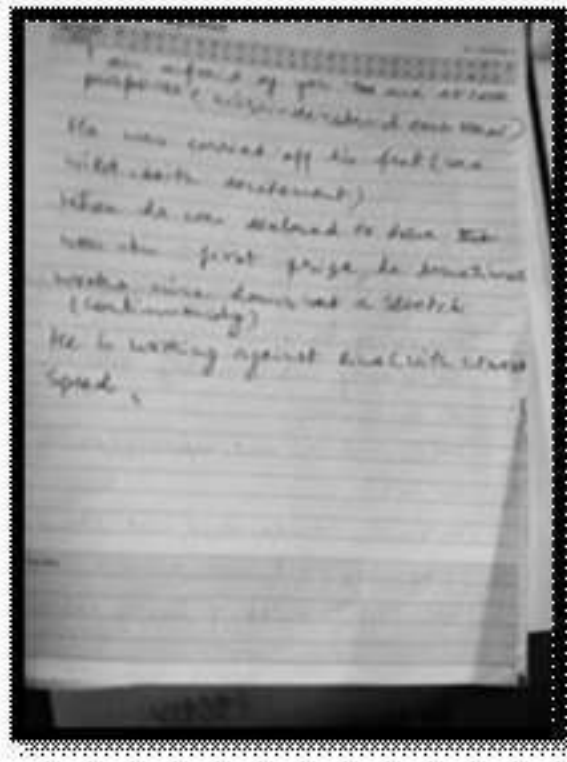 I am afraid of you and are at cross
purposes (misunderstand each other)
He was carried off his feet (was
wild with excitement)
When he was declared to have
won the first prize he sometimes
works nine hours at a stretch
(continuously)
He is working against time (with utmost
speed